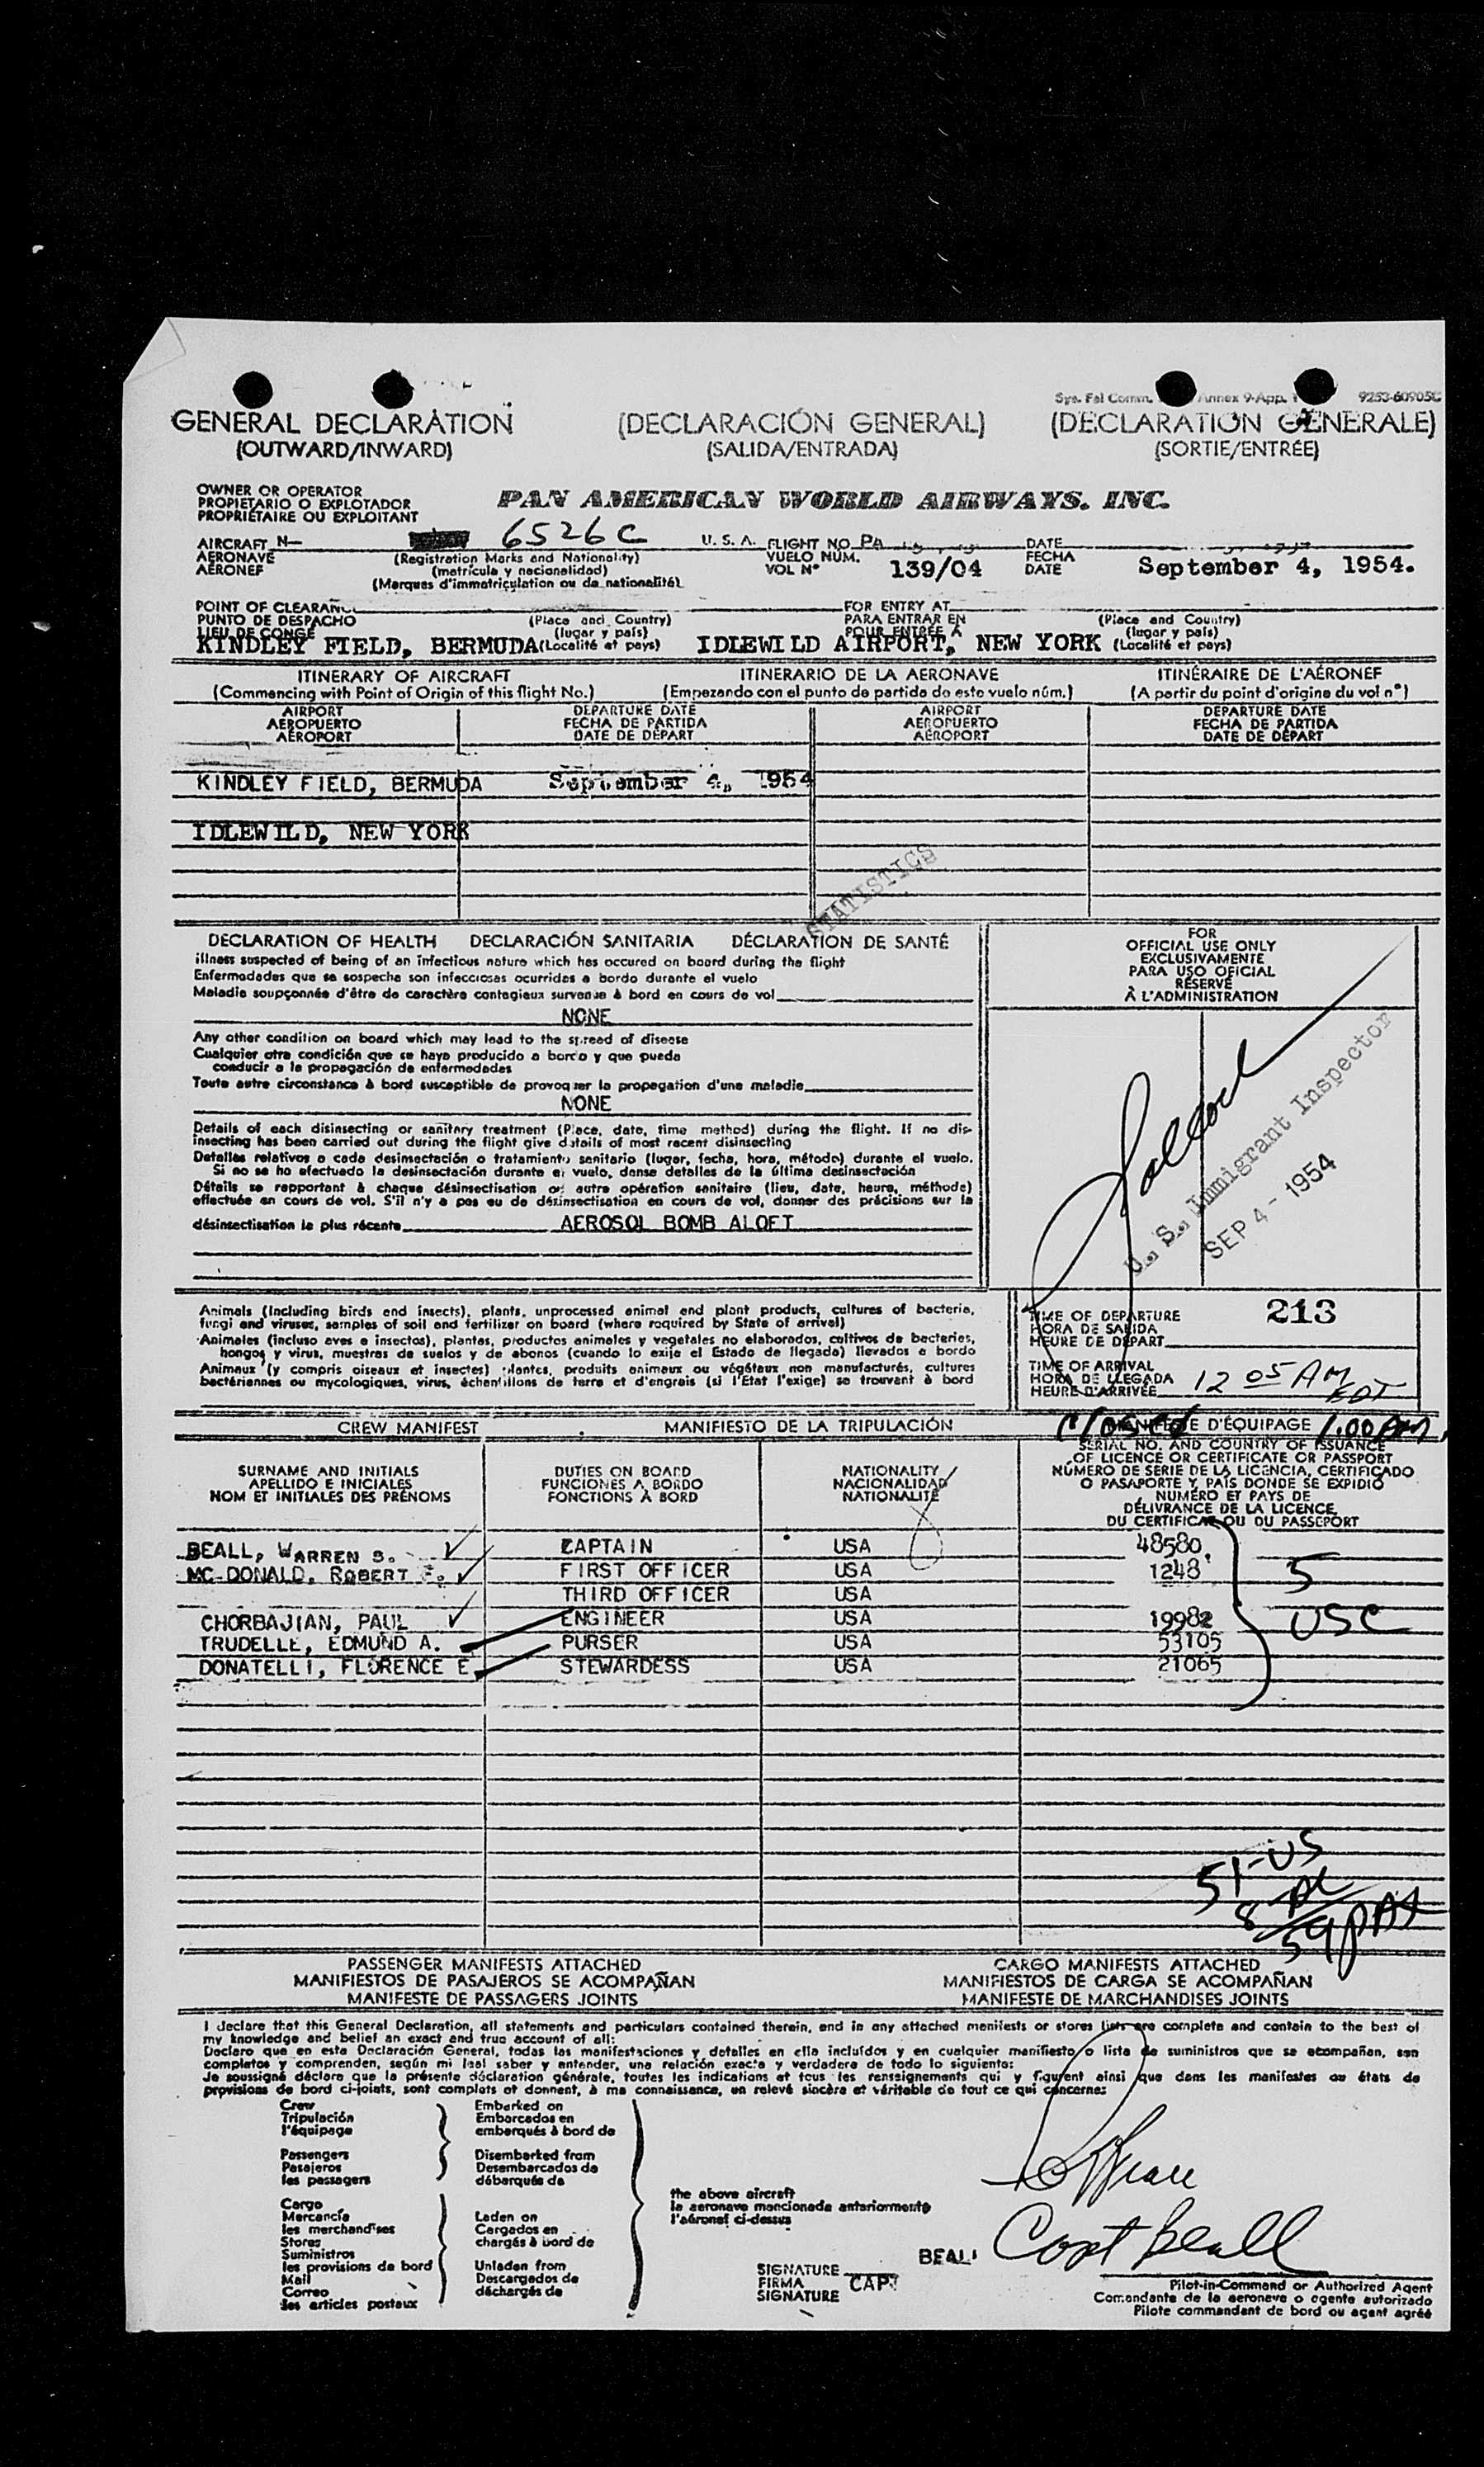 Sys. Fal Comm. Annex 9-App. 9253-60905C
GENERAL DECLARATION (DECLARACIÓN GENERAL) (DECLARATION GENERALE)
(OUTWARD/INWARD) (SALIDA/ENTRADA) (SORTIE/ENTRÉE)
OWNER OR OPERATOR
PROPIETARIO O EXPLOTADOR
PROPRIÉTAIRE OU EXPLOITANT
PAN AMERICAN WORLD AIRWAYS. INC.
AIRCRAFT N— 6526C U. S. A. FLIGHT NO. PA DATE
AERONAVE (Registration Marks and Nationality) VUELO NÚM. FECHA
AERONEF (matrícula y nacionalidad) VOL N° 139/04 DATE September 4, 1954.
(Marques d'immatriculation ou de nationalité)
POINT OF CLEARANCE FOR ENTRY AT
PUNTO DE DESPACHO (Place and Country) PARA ENTRAR EN (Place and Country)
LIEU DE CONGÉ (lugar y país) POUR ENTRÉE A (lugar y país)
KINDLEY FIELD, BERMUDA (Localité et pays) IDLEWILD AIRPORT, NEW YORK (Localité et pays)
ITINERARY OF AIRCRAFT ITINERARIO DE LA AERONAVE ITINÉRAIRE DE L'AÉRONEF
(Commencing with Point of Origin of this flight No.) (Empezando con el punto de partida de este vuelo núm.) (A partir du point d'origine du vol n°)
AIRPORT DEPARTURE DATE AIRPORT DEPARTURE DATE
AEROPUERTO FECHA DE PARTIDA AEROPUERTO FECHA DE PARTIDA
AÉROPORT DATE DE DÉPART AÉROPORT DATE DE DÉPART
KINDLEY FIELD, BERMUDA September 4, 1954
IDLEWILD, NEW YORK
STATISTICS
DECLARATION OF HEALTH DECLARACIÓN SANITARIA DÉCLARATION DE SANTÉ
illness suspected of being of an infectious nature which has occured on board during the flight
Enfermedades que se sospecha son infecciosas ocurridas a bordo durante el vuelo
Maladie soupçonnée d'être de caractère contagieux survenue à bord en cours de vol
NONE
Any other condition on board which may lead to the spread of disease
Cualquier otra condición que se haya producido a bordo y que pueda
conducir a la propagación de enfermedades
Toute autre circonstance à bord susceptible de provoquer la propagation d'une maladie
NONE
Details of each disinsecting or sanitary treatment (Place, date, time method) during the flight. If no dis-
insecting has been carried out during the flight give details of most recent disinsecting
Detalles relativos a cada desinsectación o tratamiento sanitario (lugar, fecha, hora, método) durante el vuelo.
Si no se ha efectuado la desinsectación durante el vuelo, danse detalles de la última desinsectación
Détails se rapportant à chaque désinsectisation ou autre opération sanitaire (lieu, date, heure, méthode)
effectuée en cours de vol. S'il n'y a pas eu de désinsectisation en cours de vol, donner des précisions sur la
désinsectisation le plus récente AEROSOL BOMB ALOFT
FOR
OFFICIAL USE ONLY
EXCLUSIVAMENTE
PARA USO OFICIAL
RÉSERVÉ
À L'ADMINISTRATION
U. S. Immigrant Inspector
SEP 4 - 1954
Animals (Including birds and insects), plants, unprocessed animal and plant products, cultures of bacteria,
fungi and viruses, samples of soil and fertilizer on board (where required by State of arrival)
Animales (incluso aves e insectos), plantas, productos animales y vegetales no elaborados, cultivos de bacterias,
hongos y virus, muestras de suelos y de abonos (cuando lo exija el Estado de llegada) llevados a bordo
Animaux (y compris oiseaux et insectes) plantes, produits animaux ou végétaux non manufacturés, cultures
bactériennes ou mycologiques, virus, échantillons de terre et d'engrais (si l'Etat l'exige) se trouvant à bord
TIME OF DEPARTURE 213
HORA DE SALIDA
HEURE DE DÉPART
TIME OF ARRIVAL
HORA DE LLEGADA
HEURE D'ARRIVÉE 12 05 AM
EDT
CREW MANIFEST MANIFIESTO DE LA TRIPULACIÓN MANIFESTE D'ÉQUIPAGE
closed 1:00 AM
SURNAME AND INITIALS
APELLIDO E INICIALES
NOM ET INITIALES DES PRÉNOMS
DUTIES ON BOARD
FUNCIONES A BORDO
FONCTIONS À BORD
NATIONALITY
NACIONALIDAD
NATIONALITÉ
SERIAL NO. AND COUNTRY OF ISSUANCE
OF LICENCE OR CERTIFICATE OR PASSPORT
NÚMERO DE SERIE DE LA LICENCIA, CERTIFICADO
O PASAPORTE Y PAÍS DONDE SE EXPIDIÓ
NUMÉRO ET PAYS DE
DÉLIVRANCE DE LA LICENCE,
DU CERTIFICAT OU DU PASSEPORT
BEALL, WARREN S. CAPTAIN USA 48580
MC DONALD, ROBERT F. FIRST OFFICER USA 1248
THIRD OFFICER USA
CHORBAJIAN, PAUL ENGINEER USA 19982
TRUDELLE, EDMUND A. PURSER USA 53105
DONATELLI, FLORENCE E STEWARDESS USA 21065
5
USC
51-US
8 Al
59 pax
PASSENGER MANIFESTS ATTACHED CARGO MANIFESTS ATTACHED
MANIFIESTOS DE PASAJEROS SE ACOMPAÑAN MANIFIESTOS DE CARGA SE ACOMPAÑAN
MANIFESTE DE PASSAGERS JOINTS MANIFESTE DE MARCHANDISES JOINTS
I declare that this General Declaration, all statements and particulars contained therein, and in any attached manifests or stores lists are complete and contain to the best of
my knowledge and belief an exact and true account of all:
Declaro que en esta Declaración General, todas las manifestaciones y detalles en ella incluídos y en cualquier manifiesto o lista de suministros que se acompañan, son
completos y comprenden, según mi leal saber y entender, una relación exacta y verdadera de todo lo siguiente:
Je soussigné déclare que la présente déclaration générale, toutes les indications et tous les renseignements qui y figurent ainsi que dans les manifestes ou états de
provisions de bord ci-joints, sont complets et donnent, à ma connaissance, un relevé sincère et véritable de tout ce qui concerne:
Crew
Tripulación
l'équipage
Passengers
Pasajeros
les passagers
Cargo
Mercancía
les marchandises
Stores
Suministros
les provisions de bord
Mail
Correo
les articles postaux
Embarked on
Embarcados en
embarqués à bord de
Disembarked from
Desembarcados de
débarqués de
Laden on
Cargados en
chargés à bord de
Unladen from
Descargados de
déchargés de
the above aircraft
la aeronave mencionada anteriormente
l'aéronef ci-dessus
BEALL Capt Beall
SIGNATURE
FIRMA CAPT
SIGNATURE
Pilot-in-Command or Authorized Agent
Comandante de la aeronave o agente autorizado
Pilote commandant de bord ou agent agréé